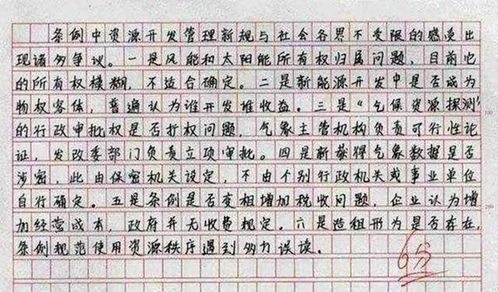 条例中资源开发管理新规与社会各界不受限的感受出
现诸多争议。一是风能和太阳能所有权归属问题,目前它
的所有权模糊,不适合确定。二是新能源开发中是否成为
物权客体,普遍认为谁开发谁收益。三是“气候资源探测”
的行政审批权是否扩权问题,气象主管机构负责可行性论
证,发改委部门负责立项审批。四是新疆牌气象数据是否
涉密,此由保密机关设定,不由个别行政机关或事业单位
自行确定。五是条例是否变相增加税收问题,企业认为增
加经营成本,政府并无收费规定。六是造租形为是否存在,
条例规范使用资源秩序遇到外力误读。
65